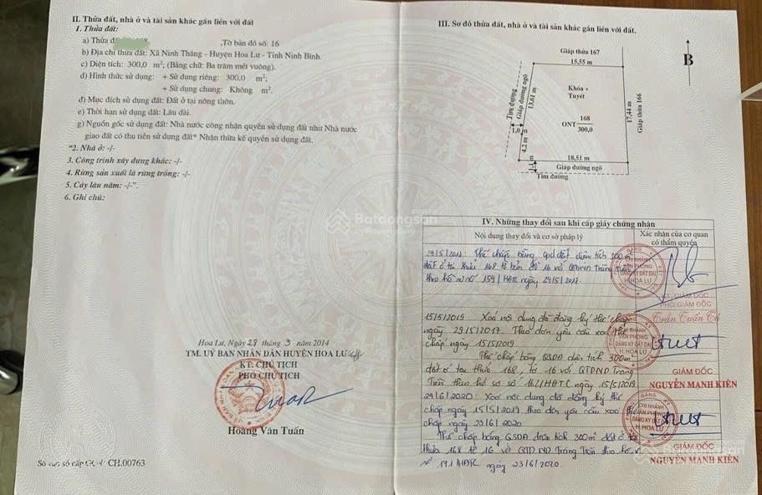 II. Thửa đất, nhà ở và tài sản khác gắn liền với đất
1. Thửa đất:
a) Thửa đất , Tờ bản đồ số: 16
b) Địa chỉ thửa đất: Xã Ninh Thắng - Huyện Hoa Lư - Tỉnh Ninh Bình.
c) Diện tích: 300,0 m², (Bằng chữ: Ba trăm mét vuông).
d) Hình thức sử dụng: + Sử dụng riêng: 300,0 m²;
+ Sử dụng chung: Không m².
đ) Mục đích sử dụng đất: Đất ở tại nông thôn.
e) Thời hạn sử dụng đất: Lâu dài.
g) Nguồn gốc sử dụng đất: Nhà nước công nhận quyền sử dụng đất như Nhà nước
giao đất có thu tiền sử dụng đất* Nhận thừa kế quyền sử dụng đất.
"2. Nhà ở: -/-
3. Công trình xây dựng khác: -/-
4. Rừng sản xuất là rừng trồng: -/-
5. Cây lâu năm: -/-".
6. Ghi chú:
Hoa Lư, Ngày 28 tháng 3 năm 2014
TM. UỶ BAN NHÂN DÂN HUYỆN HOA LƯ
KT. CHỦ TỊCH
PHÓ CHỦ TỊCH
Hoàng Văn Tuấn
Số vào sổ cấp GCN: CH.00763
Batdongsan
III. Sơ đồ thửa đất, nhà ở và tài sản khác gắn liền với đất.
B
Giáp thửa 167
15,55 m
Tim đường
Giáp đường ngõ
13,61 m
Khóa +
Tuyết
ONT 168
300,0
17,44 m
Giáp thửa 166
1,0 m
4,2 m
18,51 m
1,1 m
Giáp đường ngõ
Tim đường
IV. Những thay đổi sau khi cấp giấy chứng nhận
Nội dung thay đổi và cơ sở pháp lý
Xác nhận của cơ quan
có thẩm quyền
29/5/2017 Thế chấp bằng diện tích 300m²
đất ở tại thửa 168 tờ bản đồ 16 với QTDND
theo hồ sơ số ngày 29/5/2017
PHÓ GIÁM ĐỐC
15/5/2019 Xoá nội dung đã đăng ký thế chấp
ngày 29/5/2017 Theo đơn yêu cầu xoá thế
chấp ngày 15/5/2019
Thế chấp bằng QSDĐ diện tích 300m²
đất ở tại thửa 168, tờ 16 với QTDND
theo hồ sơ số ngày 15/5/2019
GIÁM ĐỐC
NGUYỄN MẠNH KIÊN
29/6/2020 Xoá nội dung đã đăng ký thế
chấp ngày 15/5/2019 theo đơn yêu cầu xoá thế
chấp ngày 23/6/2020
Thế chấp bằng QSDĐ diện tích 300m² đất ở tại
thửa 168 tờ 16 với QTDND theo hồ sơ
ngày 23/6/2020
GIÁM ĐỐC
NGUYỄN MẠNH KIÊN